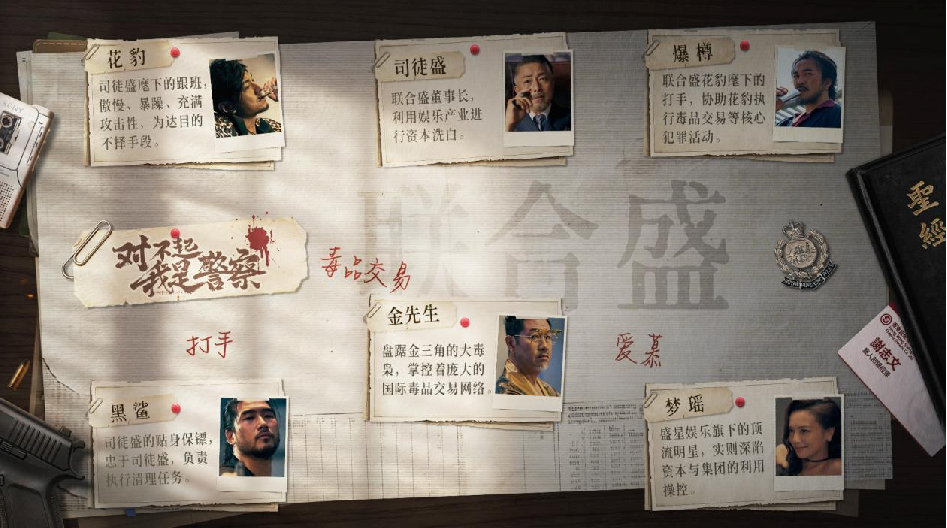 花豹
司徒盛麾下的跟班,
傲慢、暴躁、充满
攻击性、为达目的
不择手段。
司徒盛
联合盛董事长,
利用娱乐产业进
行资本洗白。
爆樽
联合盛花豹麾下的
打手,协助花豹执
行毒品交易等核心
犯罪活动。
聖經
联合盛
对不起
我是警察
毒品交易
金先生
盘踞金三角的大毒
枭,掌控着庞大的
国际毒品交易网络。
打手
爱慕
謝志文
黑鲨
司徒盛的贴身保镖,
忠于司徒盛,负责
执行清理任务。
梦瑶
盛星娱乐旗下的顶
流明星,实则深陷
资本与集团的利用
操控。